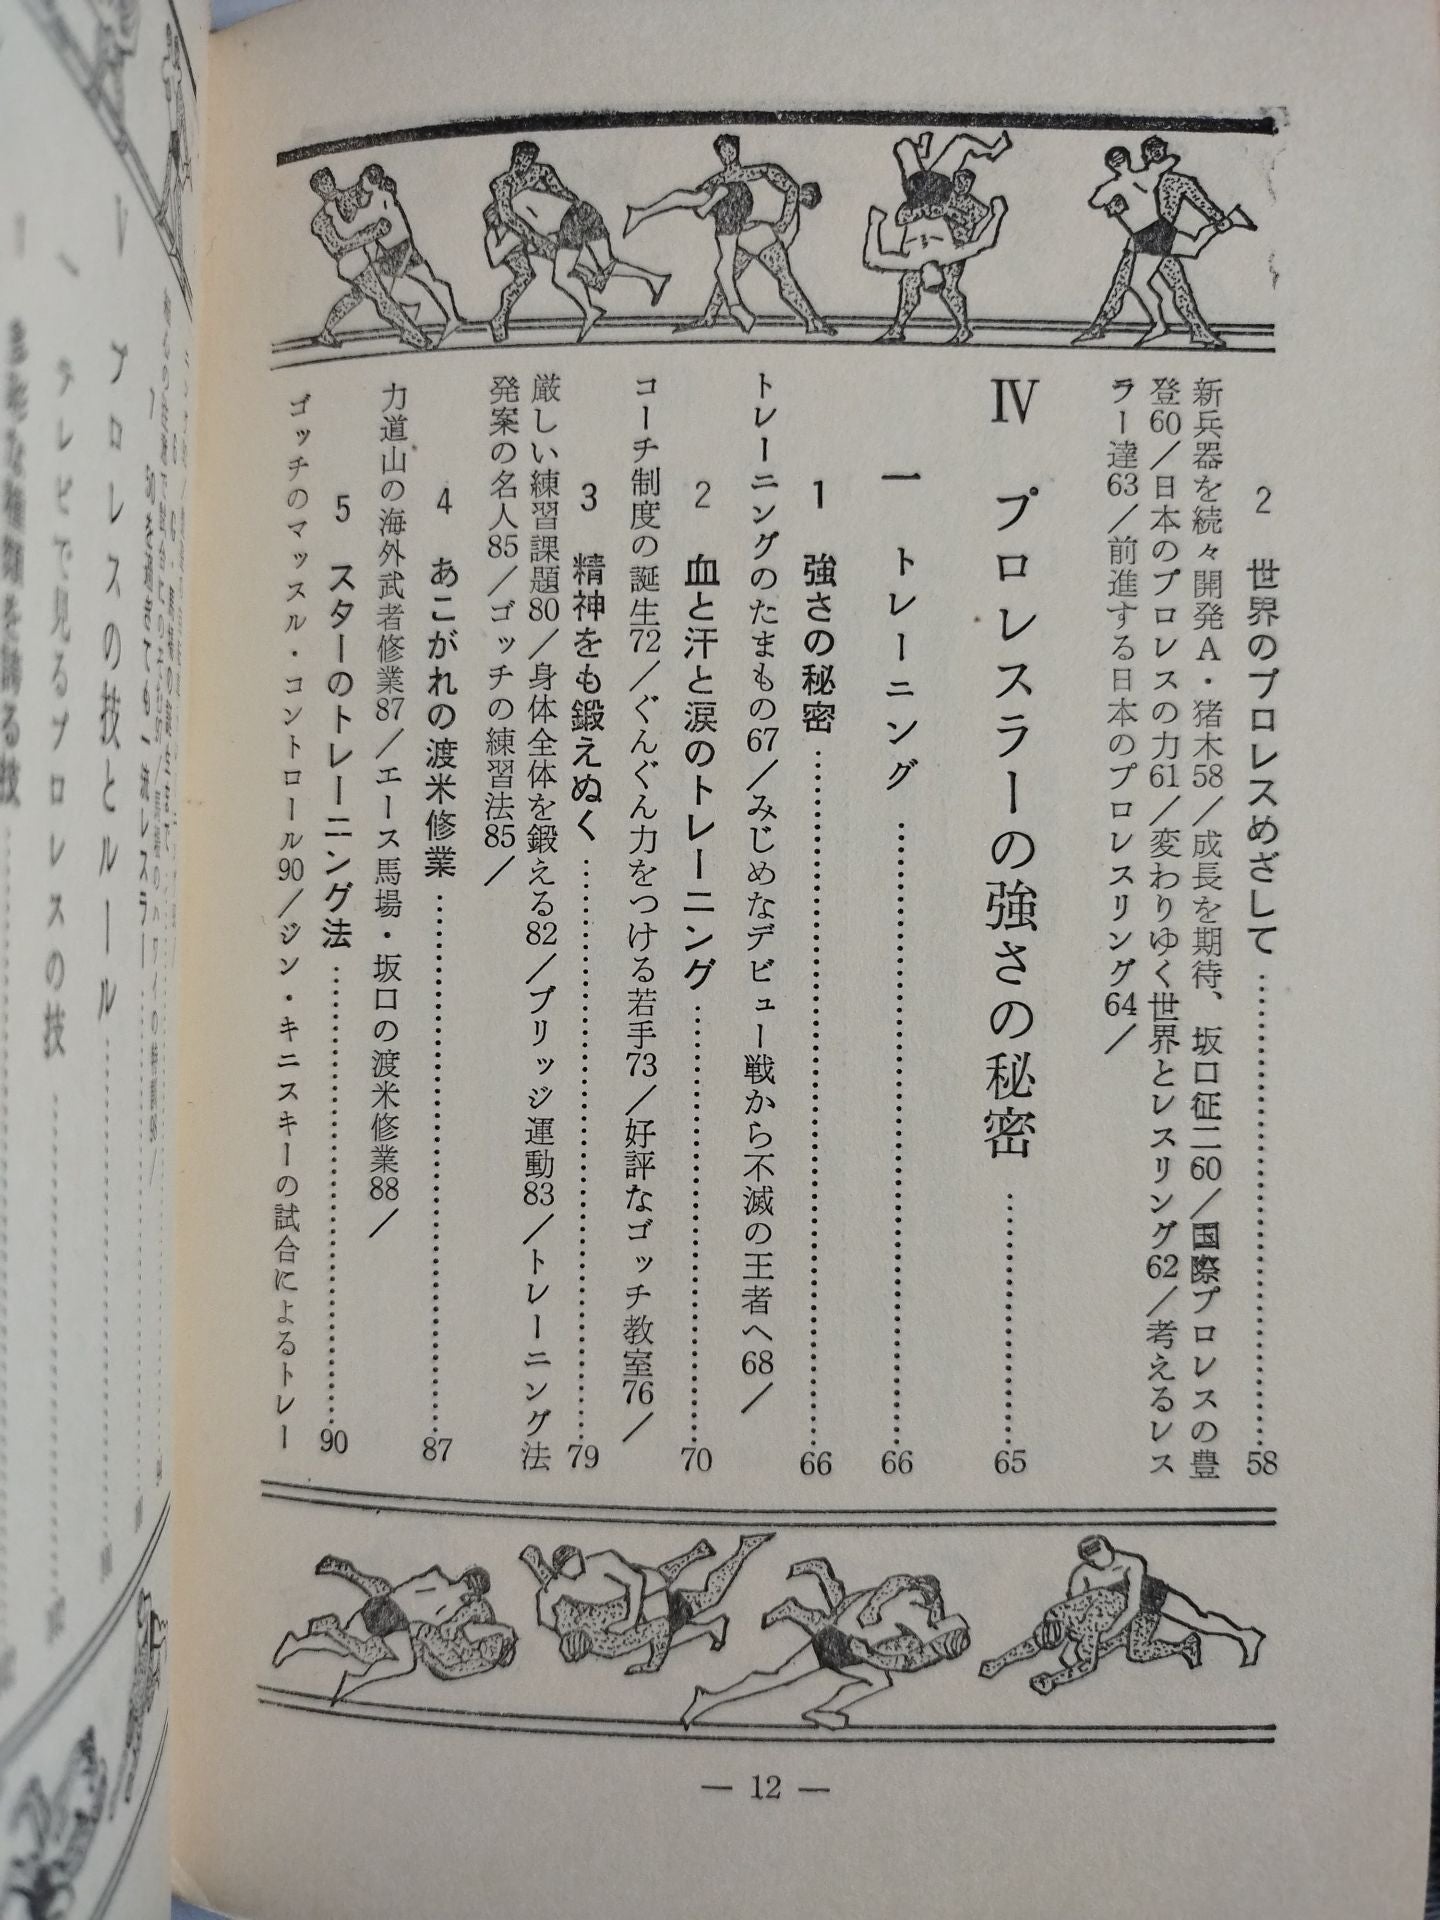 2 世界のプロレスめざして……………58
新兵器を続々開発A・猪木58／成長を期待、坂口征二60／国際プロレスの豊
登60／日本のプロレスの力61／変わりゆく世界とレスリング62／考えるレス
ラー達63／前進する日本のプロレスリング64／
Ⅳ プロレスラーの強さの秘密……………65
一 トレーニング……………66
1 強さの秘密……………66
トレーニングのたまもの67／みじめなデビュー戦から不滅の王者へ68／
2 血と汗と涙のトレーニング……………70
コーチ制度の誕生72／ぐんぐん力をつける若手73／好評なゴッチ教室76／
3 精神をも鍛えぬく……………79
厳しい練習課題80／身体全体を鍛える82／ブリッジ運動83／トレーニング法
発案の名人85／ゴッチの練習法85／
4 あこがれの渡米修業……………87
力道山の海外武者修業87／エース馬場・坂口の渡米修業88／
5 スターのトレーニング法……………90
ゴッチのマッスル・コントロール90／ジン・キニスキーの試合によるトレー
— 12 —
7 50を過ぎても一流レスラー
Ⅴ プロレスの技とルール
一 テレビで見るプロレスの技